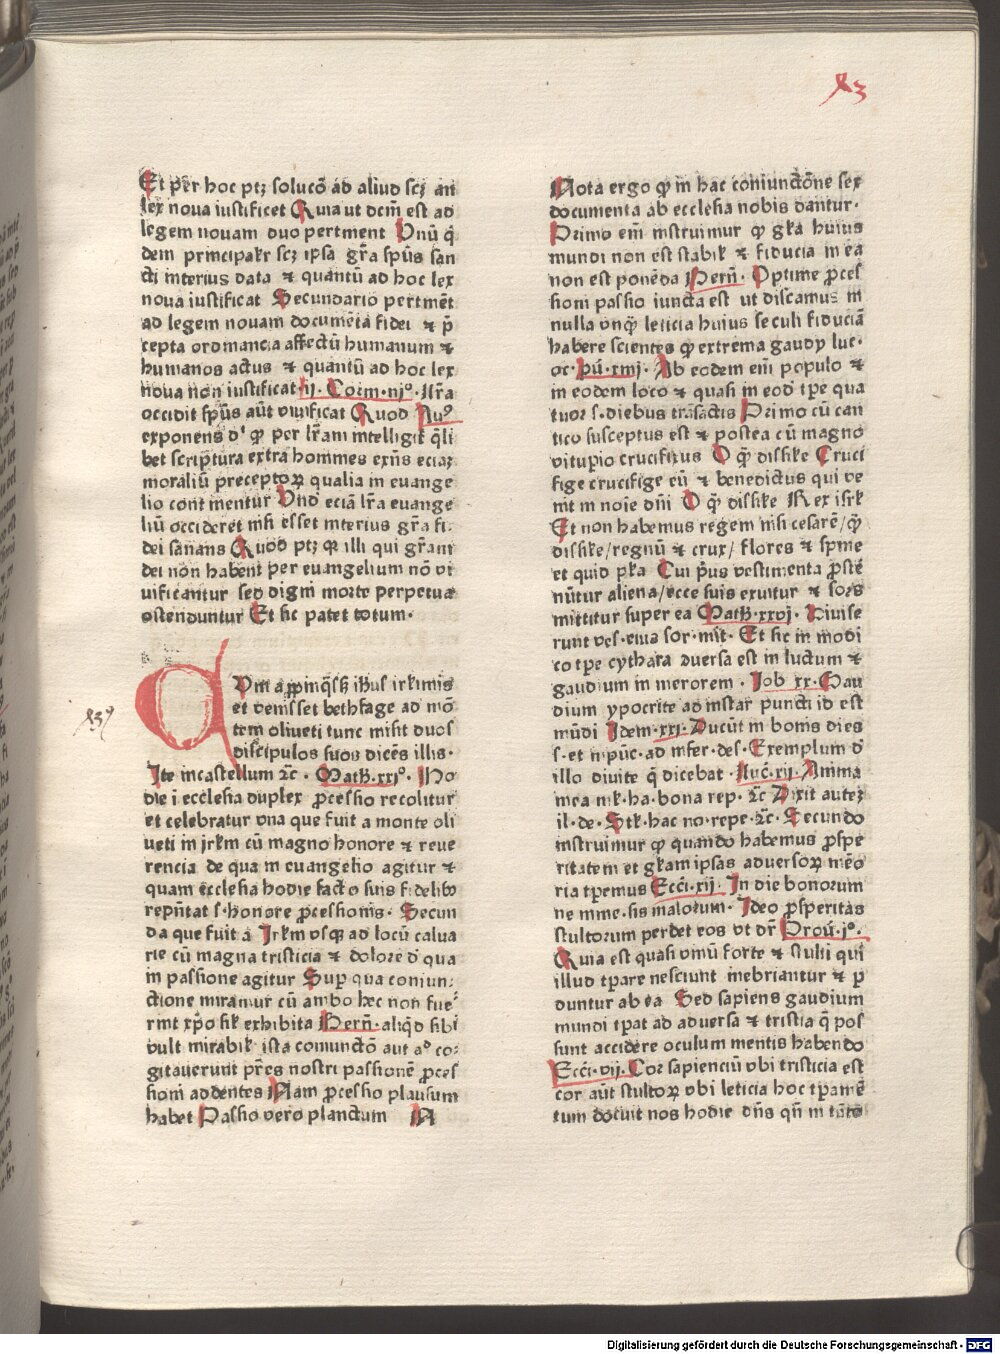 Et per hoc ptꝫ solucō ad aliud scꝫ an
lex noua iustificet Quia ut dcm̄ est ad
legem nouam duo pertinent Unū q̄
dem principalr̄ scꝫ ipsa gr̄a spūs san
cti interius data ⁊ quantū ad hoc lex
noua iustificat Secundario pertinēt
ad legem nouam documēta fidei ⁊ p̄
cepta ordinancia affectū humanum ⁊
humanos actus ⁊ quantū ad hoc lex
noua non iustificat·ij· Corin·iijº· lr̄a
occidit spūs aūt viuificat Quod Auº
exponens d' ꝙ per lr̄am intelligit̄ q̄li
bet scriptura extra hommes exn̄s eciaꝫ
moraliū preceptoꝝ qualia in euange
lio continentur Und eciā lr̄a euange
liū occideret nisi esset interius gr̄a fi
dei sanans Quod ptꝫ ꝙ illi qui gr̄am
dei non habent per euangelium nō vi
uificantur sed digni morte perpetua
ostenduntur Et sic patet totum·
Cum appinq̄sꝫ ihūs irl̄imis
et venisset bethfage ad mō
tem oliueti tunc misit duos
discipulos suos dicēs illis·
Ite in castellum ⁊c· Math·xxjº· Ho
die ī ecclesia duplex ꝓcessio recolitur
et celebratur vna que fuit a monte oli
ueti in jrl̄m cū magno honore ⁊ reue
rencia de qua in euangelio agitur ⁊
quam ecclesia hodie facto suis fidelibꝫ
repn̄tat s·honore ꝓcessionis· Secun
da que fuit a Jrl̄m vsqꝫ ad locū calua
rie cū magna tristicia ⁊ dolore d̄ qua
in passione agitur Sup̱ qua coniun-
ctione miramur cū ambo hec non fue-
rint xp̄o sil̄ exhibita Bern̄·aliqd sibi
vult mirabil̄ ista coniunctō aut aº co-
gitauerunt pr̄es nostri passionē ꝓces
sioni addentes Nam ꝓcessio plausum
habet Passio vero planctum N
Nota ergo ꝙ in hac coniunctōne sex
documenta ab ecclesia nobis dantur·
Primo em̄ instruimur ꝙ gl̄ia huius
mundi non est stabil̄ ⁊ fiducia in ea
non est ponēda Bern̄· Optime ꝓces
sioni passio iuncta est ut discamus in
nulla vnqꝫ leticia huius seculi fiduciā
habere scientes ꝙ extrema gaudij luc·
oc·pū·xiiij· Ab eodem em̄ populo ⁊
in eodem loco ⁊ quasi in eod tp̄e qua
tuor s·diebus trāsactis Primo cū can
tico susceptus est ⁊ postea cū magno
vitupio crucifixus O q̄ dissil̄e Cruci
fige crucifige eū ⁊ benedictus qui ve
nit in noīe dn̄i O q̄ dissil̄e Rex isrl̄
Et non habemus regem nisi cesarē/q̄
dissil̄e/regnū ⁊ crux/ flores ⁊ spine
et quid pl̄a Cui p̄us vestimenta ꝓstē
nūtur aliena/ecce suis exuitur ⁊ sors
mittitur super ea Math·xxvj· Diuise
runt ves·eius sor·mit· Et sic in modi
co tp̄e cythara versa est in luctum ⁊
gaudium in merorem · Job xx·Gau
dium ypocrite ad instar puncti id est
mūdi Idem·xxj· Ducūt in bonis dies
s·et in pūc·ad infer·des·Exemplum d'
illo diuite q̄ dicebat ·Luc̄·xij·Anima
mea m̄l·ha·bona rep· ⁊c Dixit auteꝫ
il·de·Stl̄·hac no·repe·⁊c· Secundo
instruimur ꝙ quando habemus ꝓspe
ritatem et gl̄iam ipsas aduersoꝝ mēo
ria tp̄emus Ecci·xij· In die bonorum
ne mine·sis malorum· Ideo ꝓsperitas
stultorum perdet eos vt dr̄ Prou̅·jº·
Quia est quasi vinū forte ⁊ stulti qui
illud tp̄are nesciunt inebriantur ⁊ p̱
duntur ab ea Sed sapiens gaudium
mundi tp̄at ad aduersa ⁊ tristia q̄ pos
sunt accidere oculum mentis habendo
Ecci·vij· Cor sapienciū vbi tristicia est
cor aūt stultoꝝ vbi leticia hoc tp̄amē
tum docuit nos hodie dn̄s qn̄ in tāto
Digitalisierung gefördert durch die Deutsche Forschungsgemeinschaft - DFG